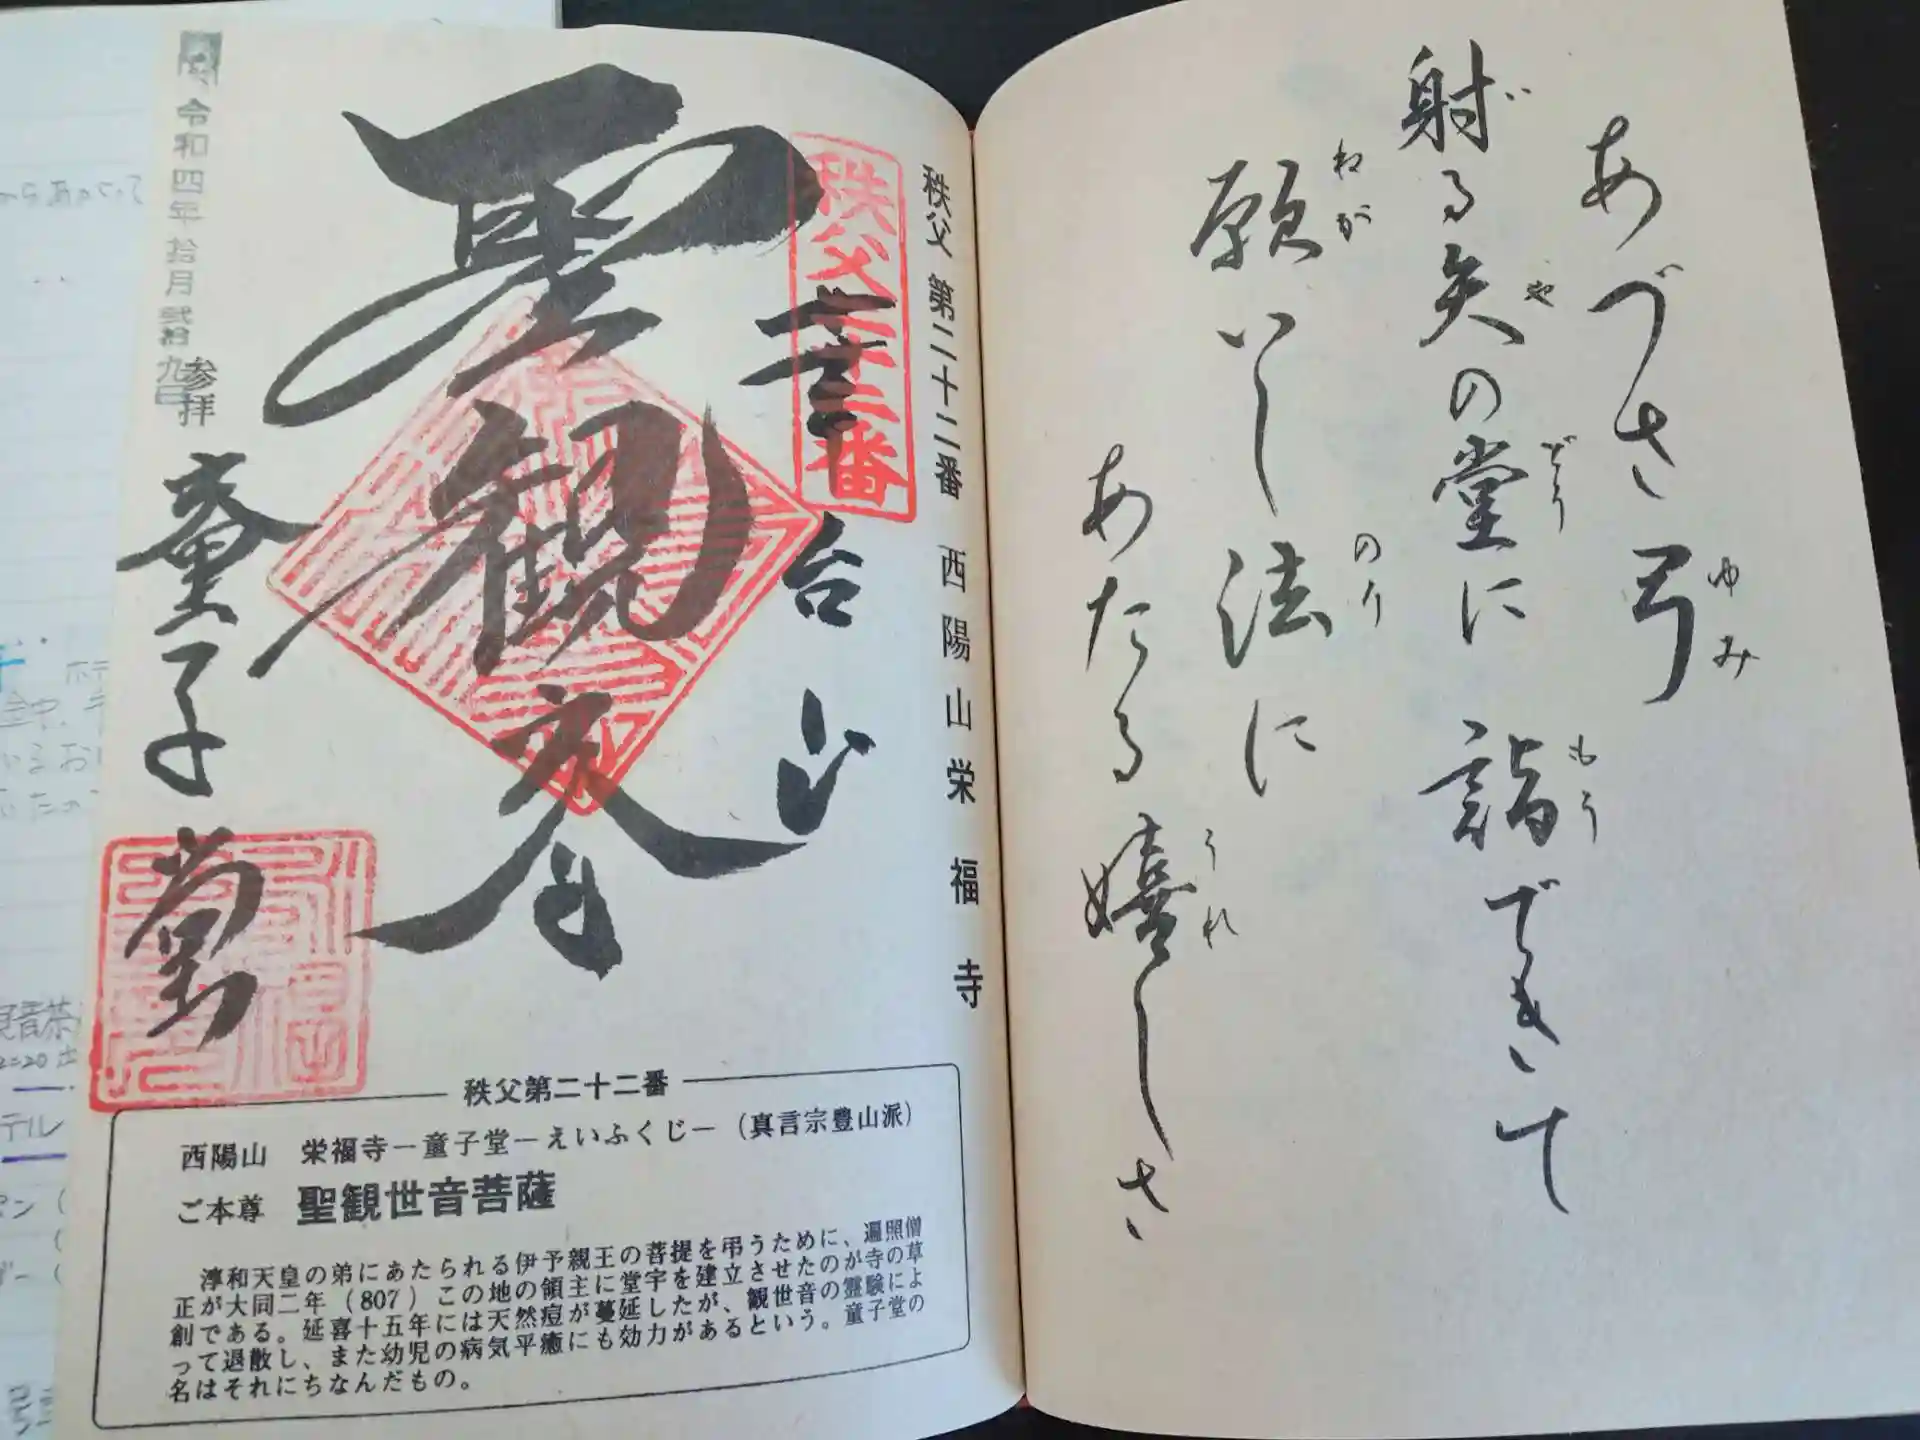 あづさ弓
ゆみ
射る矢の堂に詣できて
い
や
どう
もう
願いし法に
ねが
のり
あたる嬉しさ
うれ
秩父 第二十二番 西陽山栄福寺
秩父二十二番
華台山
聖観世音
童子堂
令和四年拾月弐拾九日
参拝
秩父第二十二番
西陽山 栄福寺―童子堂―えいふくじ―(真言宗豊山派)
ご本尊 聖観世音菩薩
淳和天皇の弟にあたられる伊予親王の菩提を弔うために、遍照僧
正が大同二年(807)この地の領主に堂宇を建立させたのが寺の草
創である。延喜十五年には天然痘が蔓延したが、観世音の霊験によ
って退散し、また幼児の病気平癒にも効力があるという。童子堂の
名はそれにちなんだもの。